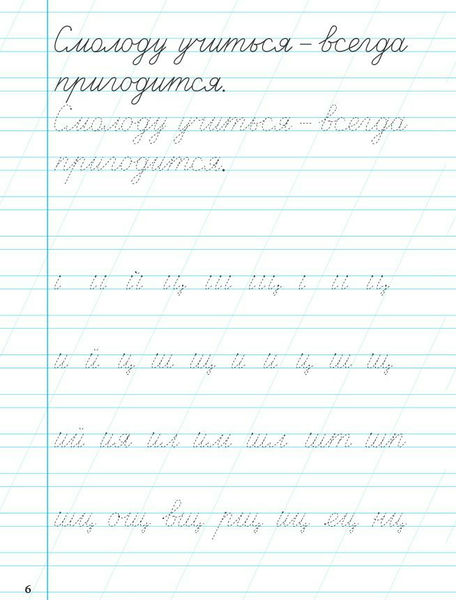 Смолоду учиться – всегда
пригодится.
Смолоду учиться – всегда
пригодится.
і и й ц ш щ і и ц
и й ц ш щ и и ц ш щ
ий ия ил им шл шт шп
шц ощ вщ рщ щ ец нц
6